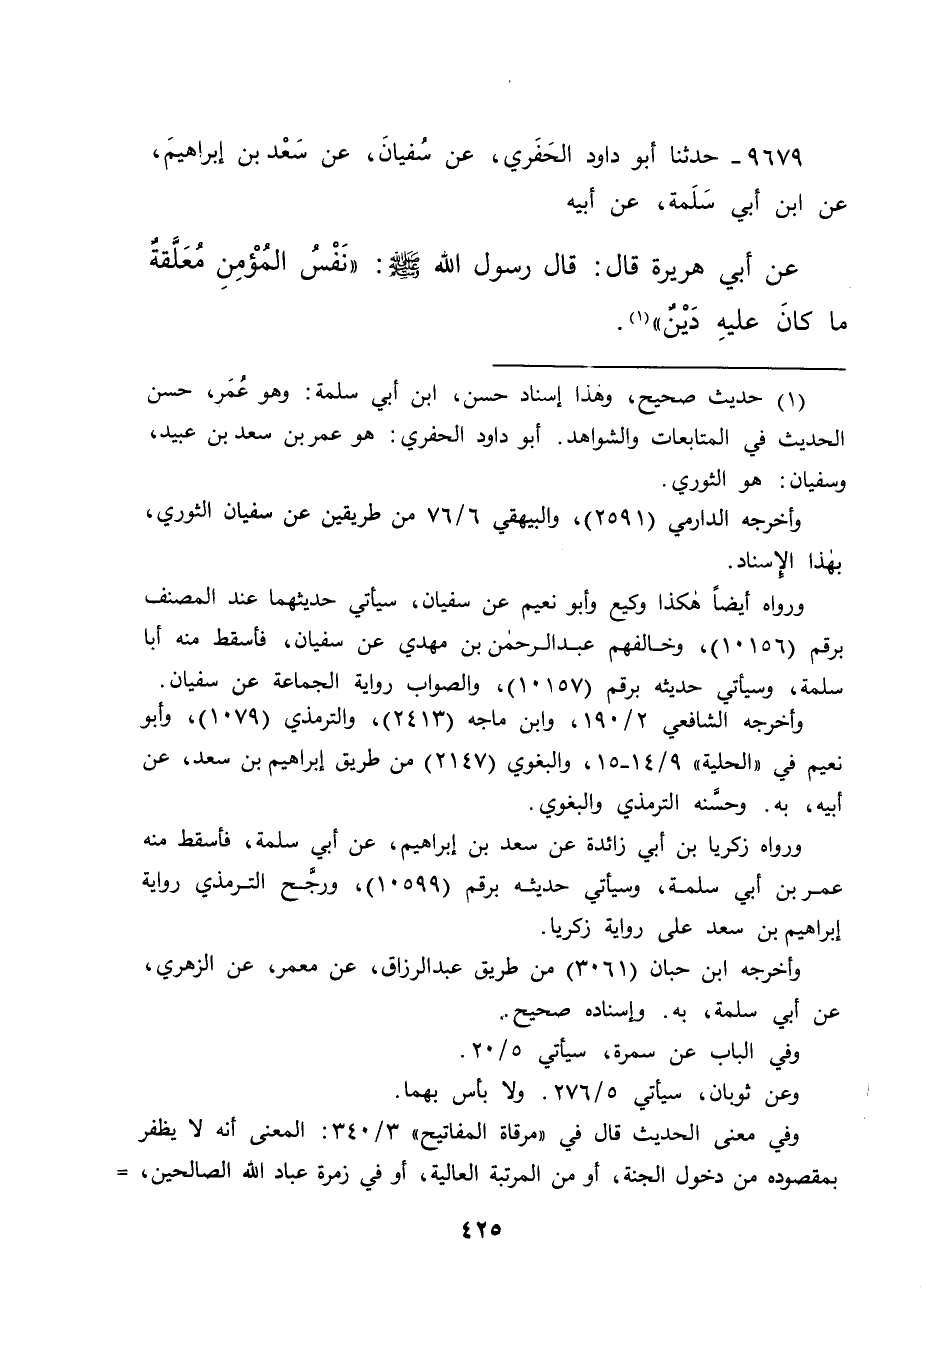 ٩٦٧٩ - حدثنا أبو داود الحَفَري، عن سُفيانَ، عن سَعْد بن إبراهيمَ،
عن ابن أبي سَلَمة، عن أبيه
عن أبي هريرة قال: قال رسول الله ﷺ: «نَفْسُ المُؤْمِنِ مُعَلَّقةٌ
ما كانَ عليهِ دَيْنٌ»(١).
(١) حديث صحيح، وهٰذا إسناد حسن، ابن أبي سلمة: وهو عُمَر، حسن
الحديث في المتابعات والشواهد. أبو داود الحفري: هو عمر بن سعد بن عبيد،
وسفيان: هو الثوري.
وأخرجه الدارمي (٢٥٩١)، والبيهقي ٧٦/٦ من طريقين عن سفيان الثوري،
بهٰذا الإسناد.
ورواه أيضاً هٰكذا وكيع وأبو نعيم عن سفيان، سيأتي حديثهما عند المصنف
برقم (١٠١٥٦)، وخالفهم عبدالرحمٰن بن مهدي عن سفيان، فأسقط منه أبا
سلمة، وسيأتي حديثه برقم (١٠١٥٧)، والصواب رواية الجماعة عن سفيان.
وأخرجه الشافعي ١٩٠/٢، وابن ماجه (٢٤١٣)، والترمذي (١٠٧٩)، وأبو
نعيم في «الحلية» ١٤/٩-١٥، والبغوي (٢١٤٧) من طريق إبراهيم بن سعد، عن
أبيه، به. وحسَّنه الترمذي والبغوي.
ورواه زكريا بن أبي زائدة عن سعد بن إبراهيم، عن أبي سلمة، فأسقط منه
عمر بن أبي سلمة، وسيأتي حديثه برقم (١٠٥٩٩)، ورجَّح الترمذي رواية
إبراهيم بن سعد على رواية زكريا.
وأخرجه ابن حبان (٣٠٦١) من طريق عبدالرزاق، عن معمر، عن الزهري،
عن أبي سلمة، به. وإسناده صحيح.
وفي الباب عن سمرة، سيأتي ٢٠/٥.
وعن ثوبان، سيأتي ٢٧٦/٥. ولا بأس بهما.
وفي معنى الحديث قال في «مرقاة المفاتيح» ٣٤٠/٣: المعنى أنه لا يظفر
بمقصوده من دخول الجنة، أو من المرتبة العالية، أو في زمرة عباد الله الصالحين، =
٤٢٥